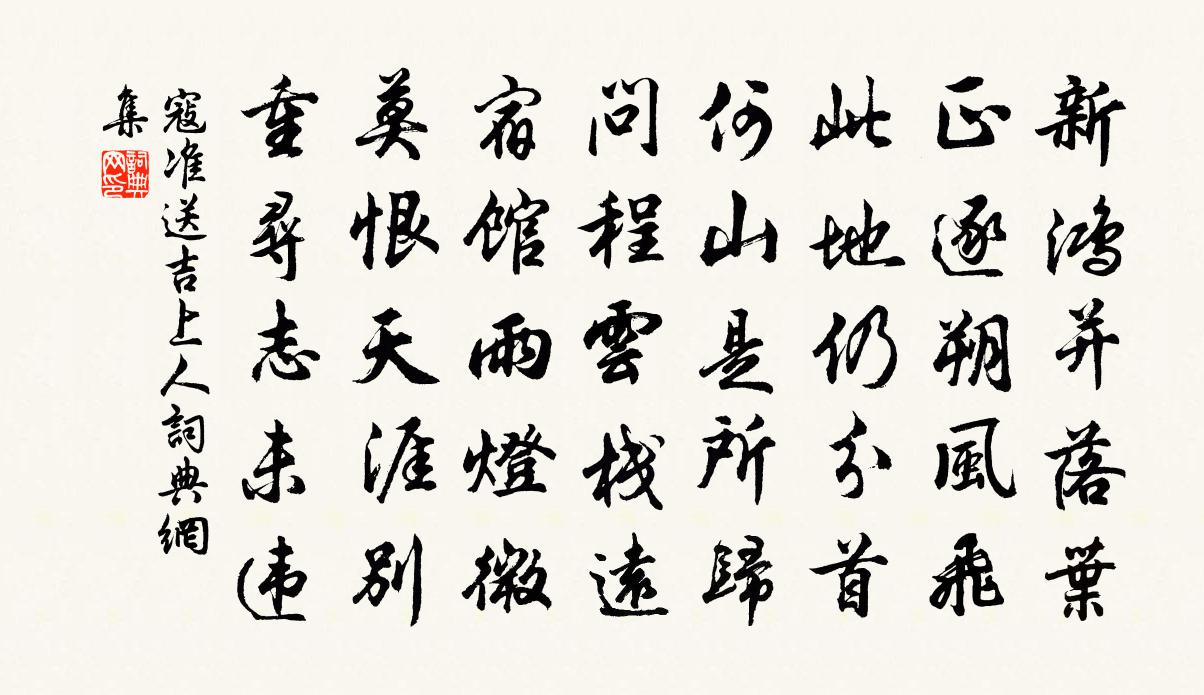 新鴻并落葉
正逐朔風飛
此地仍分首
何山是所歸
問程雲棧遠
宿館雨燈微
莫恨天涯別
重尋志未违
寇准送吉上人詞典網
集
詞典网印